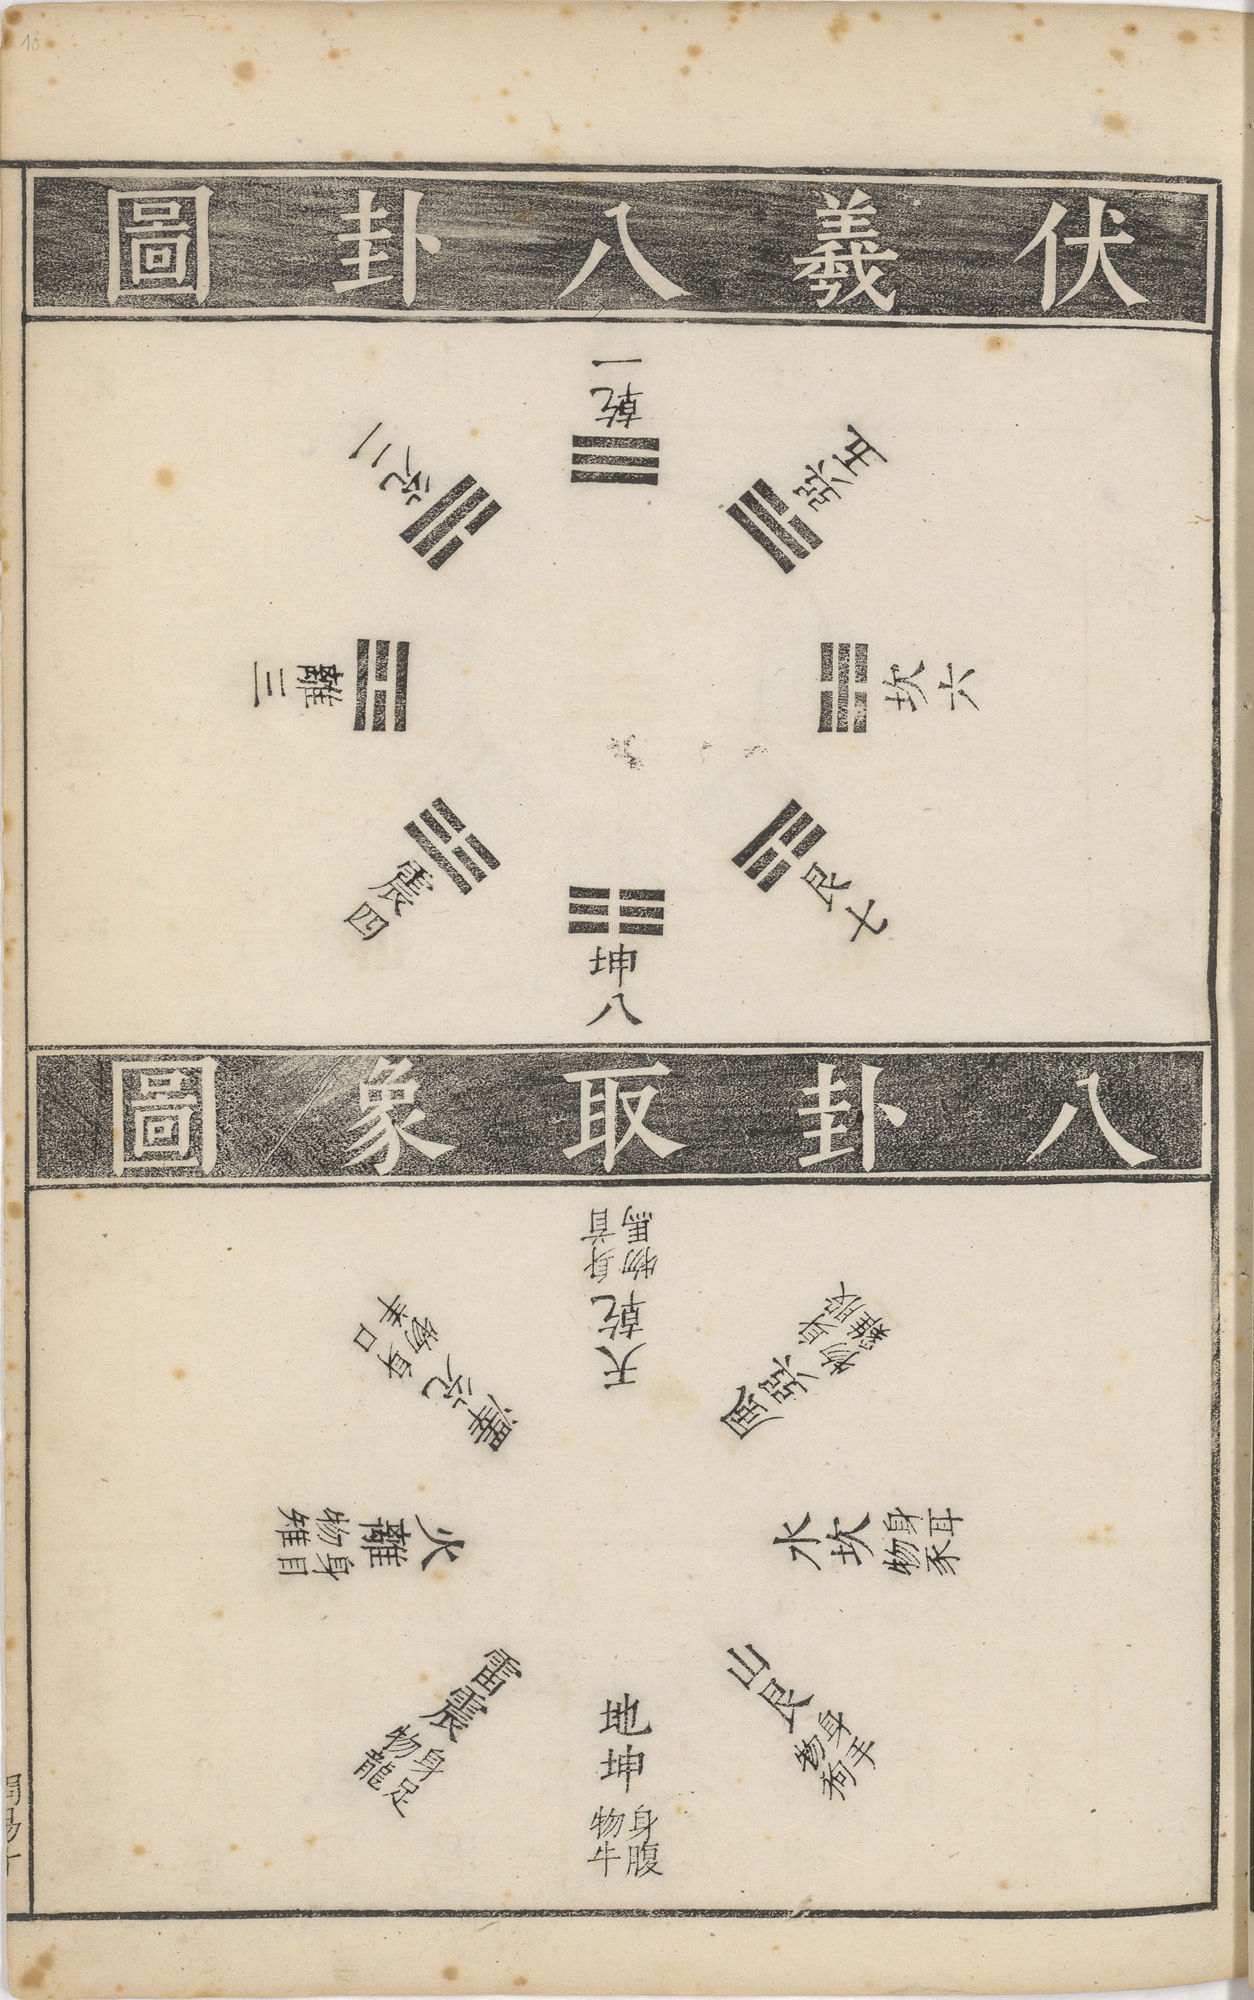 伏羲八卦圖
乾一
兌二
離三
震四
巽五
坎六
艮七
坤八
八卦取象圖
天乾
身首
物馬
澤兌
身口
物羊
火離
身目
物雉
雷震
身足
物龍
風巽
身股
物雞
水坎
身耳
物豕
山艮
身手
物狗
地坤
身腹
物牛